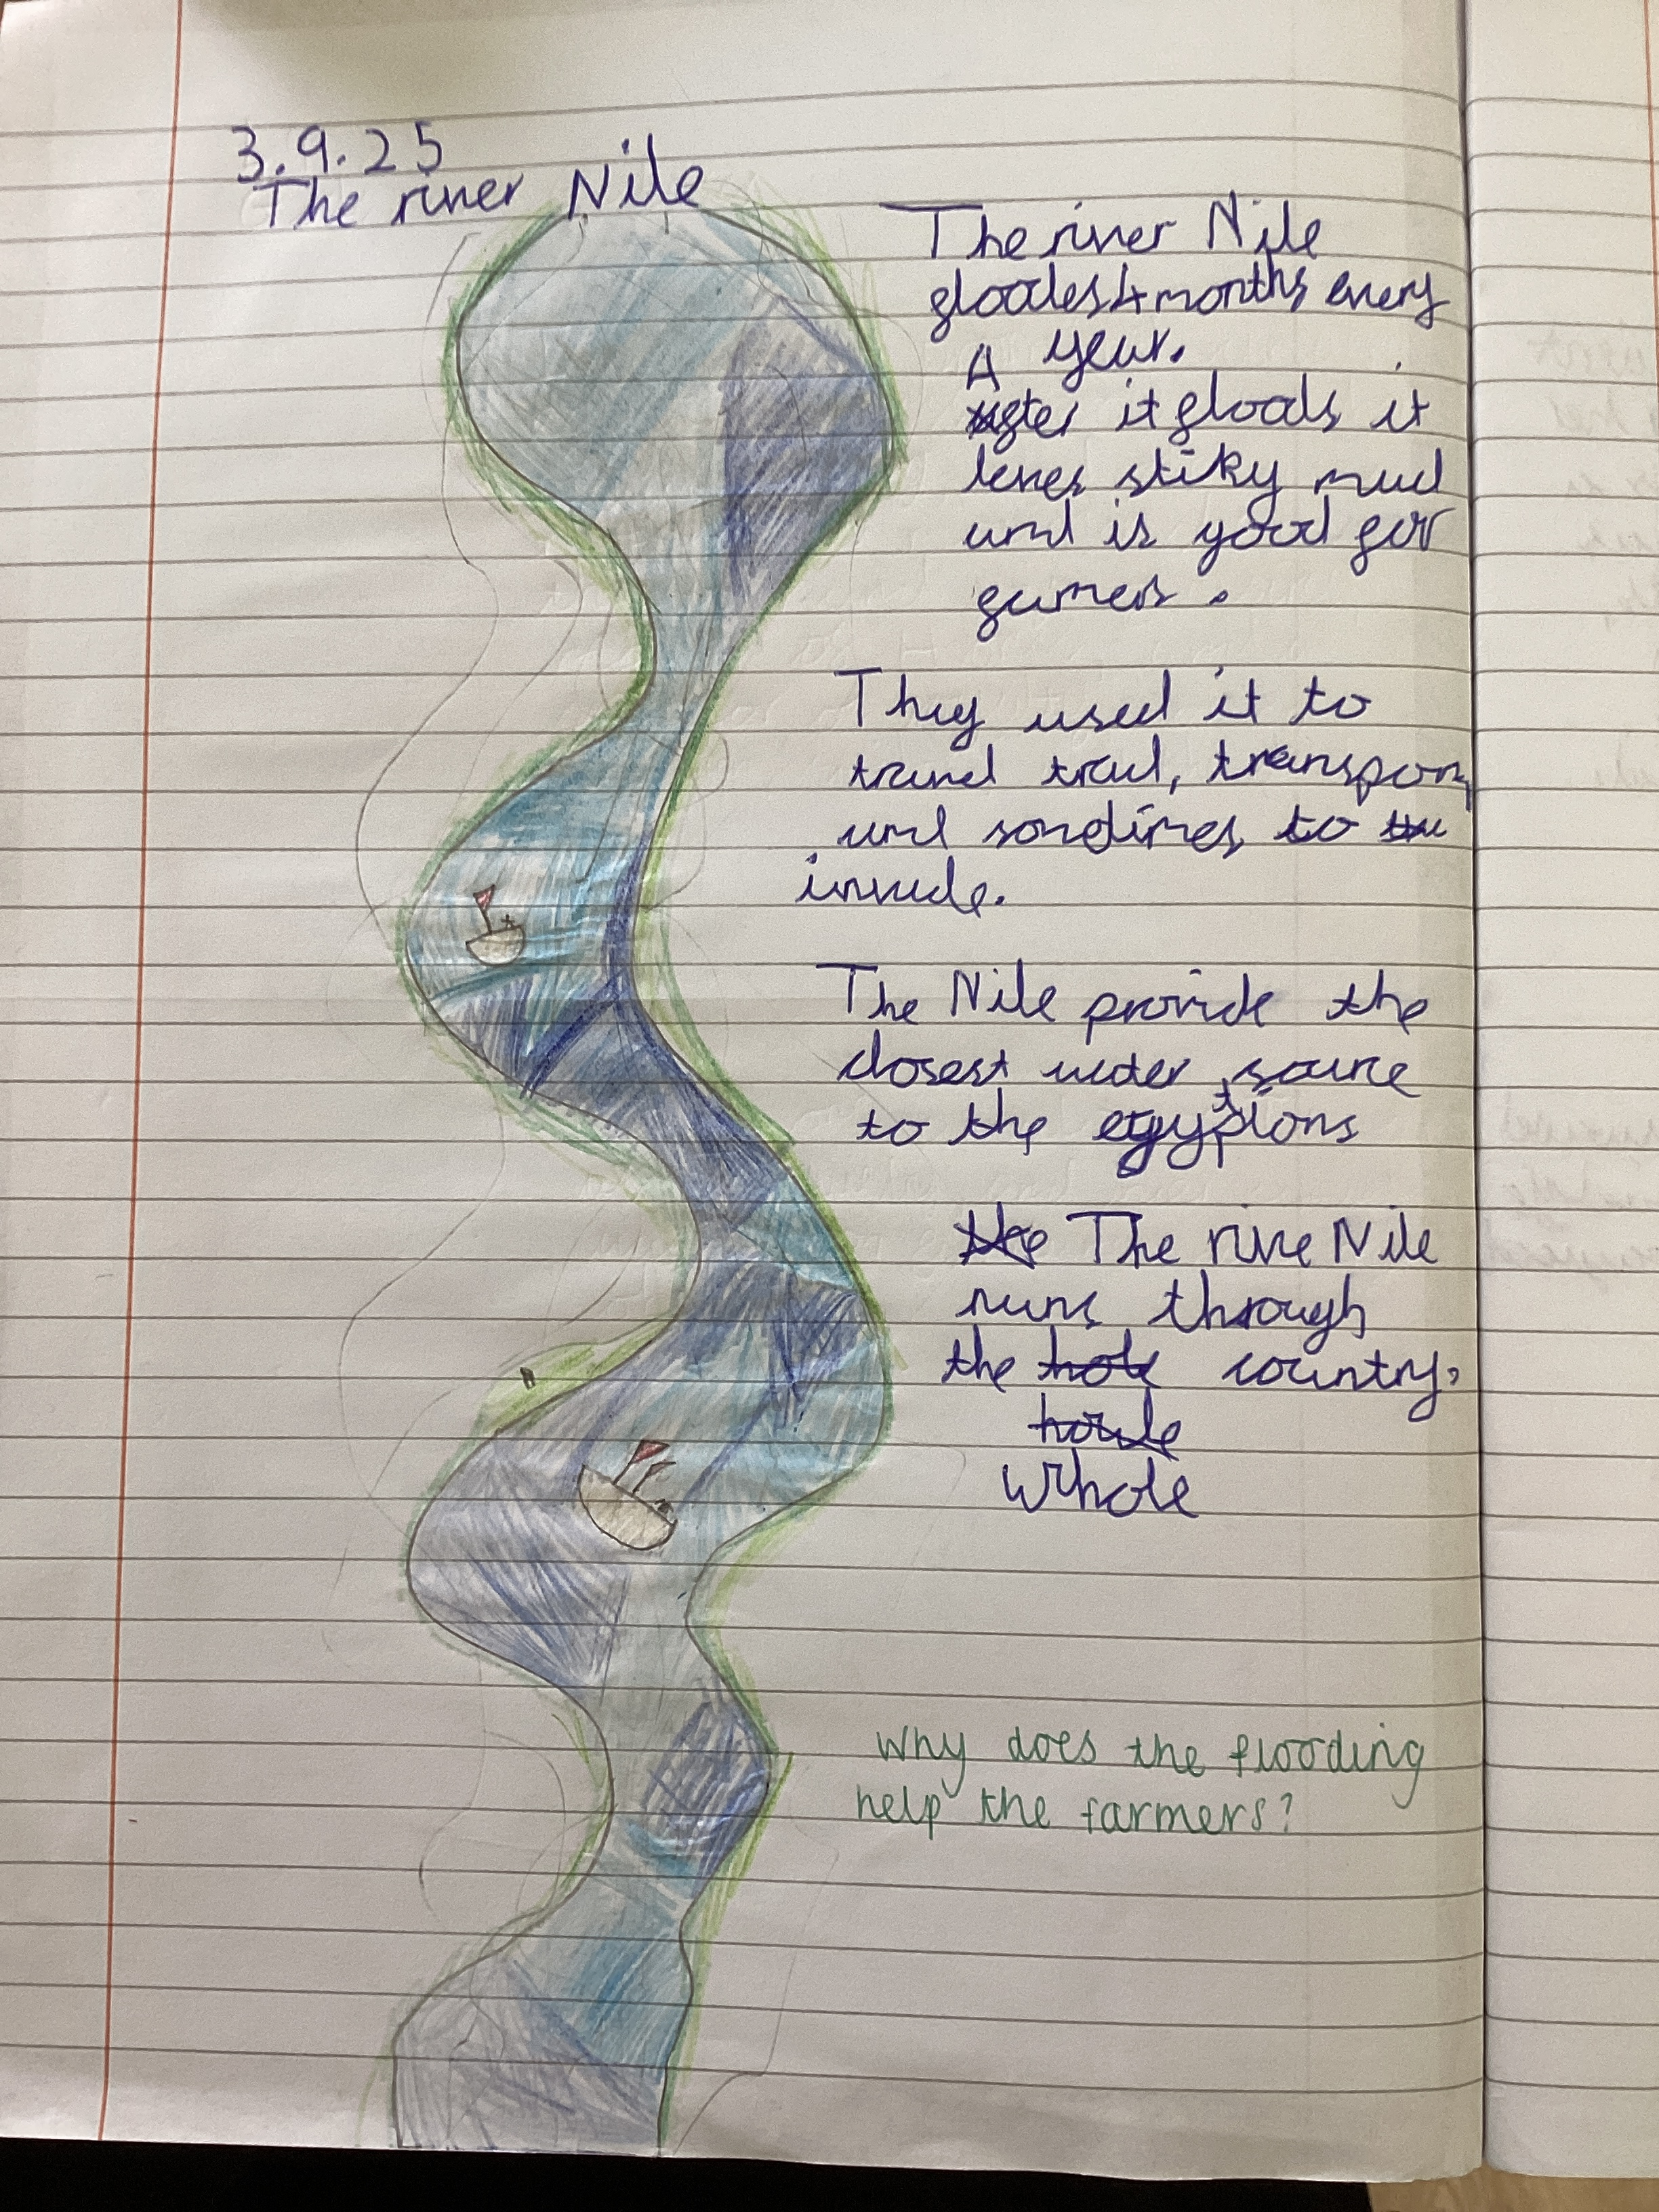 3.9.25
The river Nile
The river Nile
floodes 4 months every
year.
A
fter it floods it
leves stiky mud
and is good for
farmers.
They used it to
travel trad, transport
and somdimes to
invade.
The Nile provide the
closest water source
to the egyptions
The The rive Nile
runs through
the hole country.
houle
Whole
Why does the flooding
help the farmers?